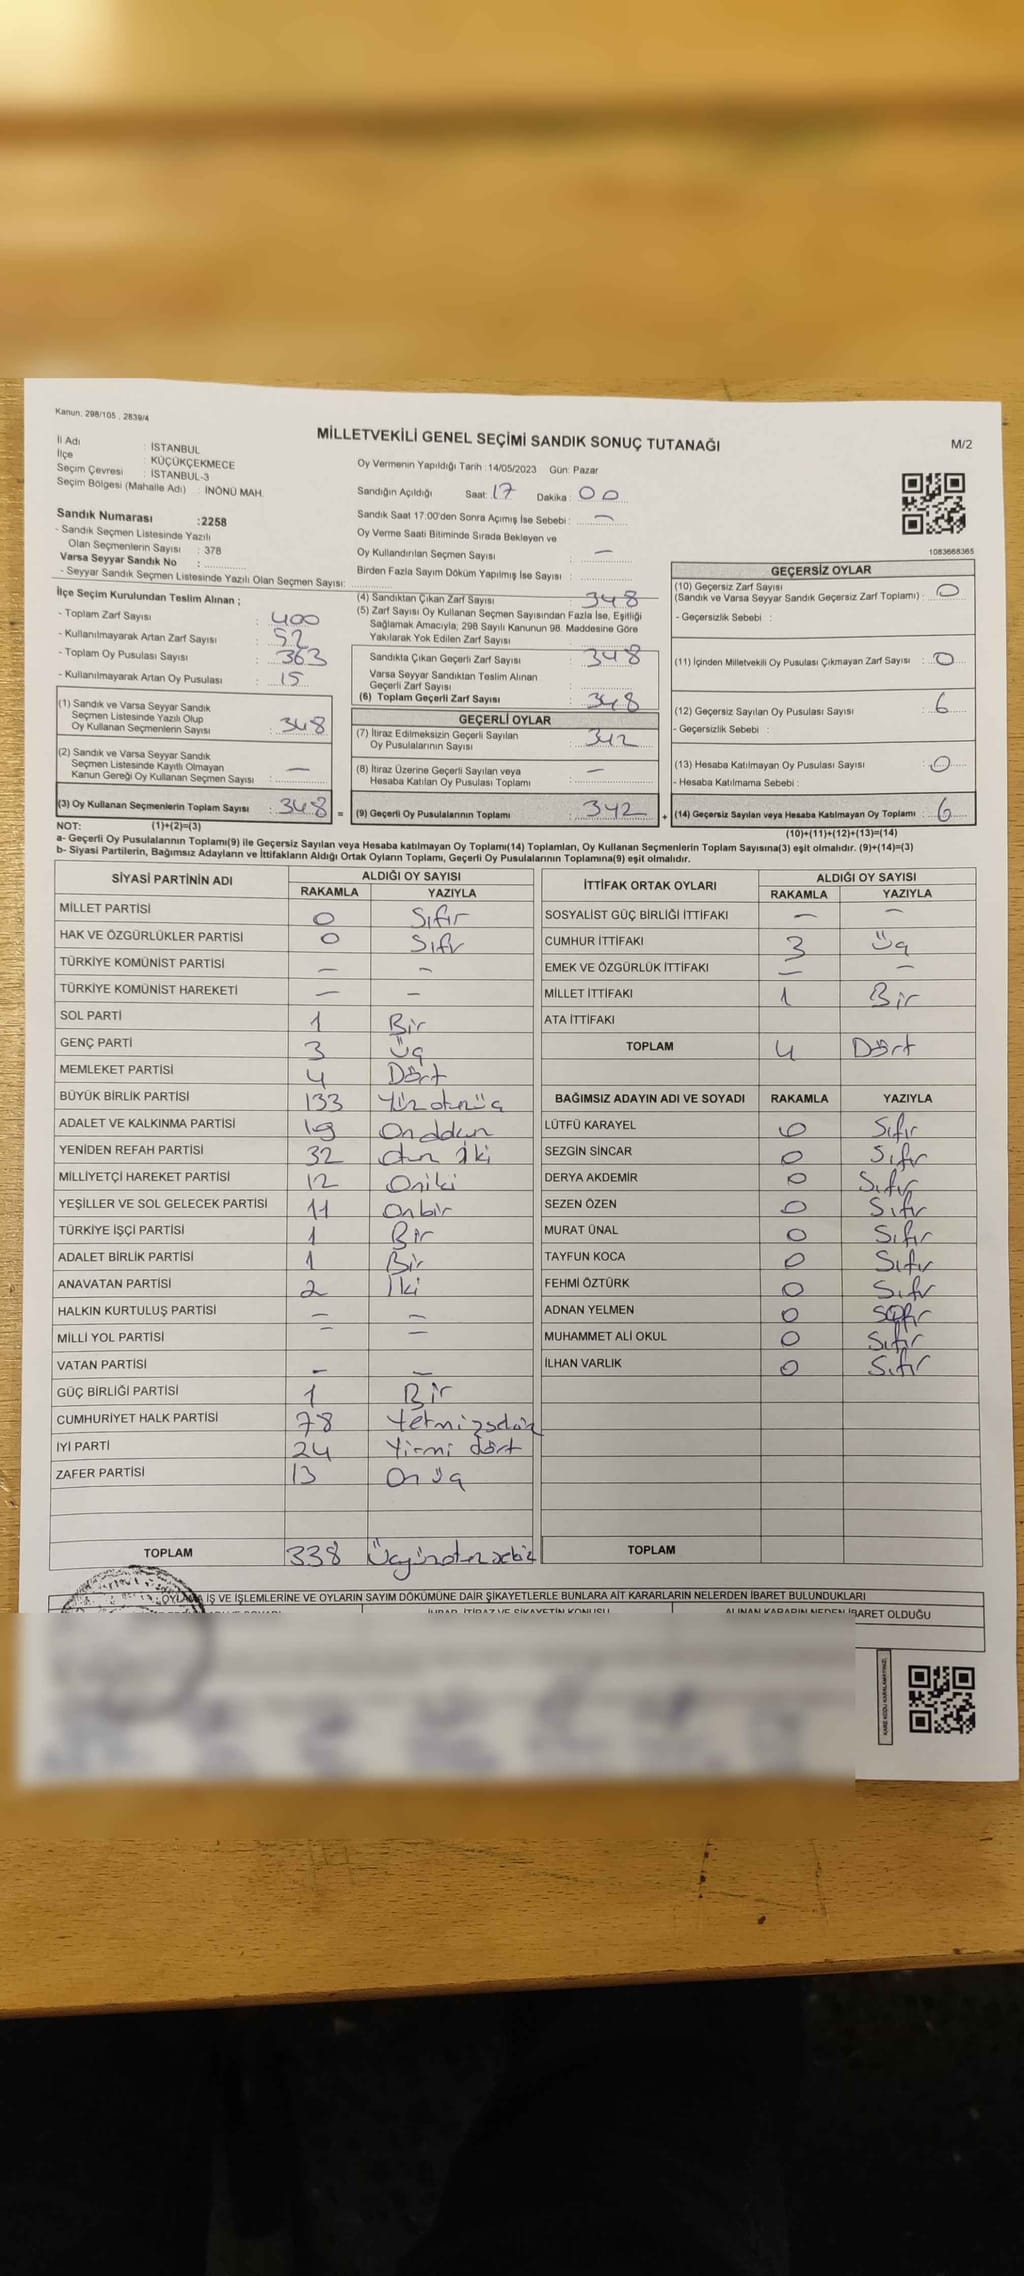 Kanun, 298/105 , 2839/4
MİLLETVEKİLİ GENEL SEÇİMİ SANDIK SONUÇ TUTANAĞI
M/2
İl Adı : İSTANBUL
İlçe : KÜÇÜKÇEKMECE
Seçim Çevresi : İSTANBUL-3
Seçim Bölgesi (Mahalle Adı) : İNÖNÜ MAH.
Oy Vermenin Yapıldığı Tarih :14/05/2023 Gün: Pazar
Sandığın Açıldığı Saat: 17 Dakika : 00
Sandık Saat 17.00'den Sonra Açımış İse Sebebi : —
Oy Verme Saati Bitiminde Sırada Bekleyen ve
Oy Kullandırılan Seçmen Sayısı : —
Birden Fazla Sayım Döküm Yapılmış İse Sayısı :
1083668365
Sandık Numarası :2258
- Sandık Seçmen Listesinde Yazılı
Olan Seçmenlerin Sayısı : 378
Varsa Seyyar Sandık No :
- Seyyar Sandık Seçmen Listesinde Yazılı Olan Seçmen Sayısı:
İlçe Seçim Kurulundan Teslim Alınan ;
- Toplam Zarf Sayısı : 400
- Kullanılmayarak Artan Zarf Sayısı : 52
- Toplam Oy Pusulası Sayısı : 363
- Kullanılmayarak Artan Oy Pusulası : 15
(1) Sandık ve Varsa Seyyar Sandık
Seçmen Listesinde Yazılı Olup
Oy Kullanan Seçmenlerin Sayısı : 348
(2) Sandık ve Varsa Seyyar Sandık
Seçmen Listesinde Kayıtlı Olmayan
Kanun Gereği Oy Kullanan Seçmen Sayısı : —
(3) Oy Kullanan Seçmenlerin Toplam Sayısı : 348 =
(4) Sandıktan Çıkan Zarf Sayısı : 348
(5) Zarf Sayısı Oy Kullanan Seçmen Sayısından Fazla İse, Eşitliği
Sağlamak Amacıyla; 298 Sayılı Kanunun 98. Maddesine Göre
Yakılarak Yok Edilen Zarf Sayısı
Sandıkta Çıkan Geçerli Zarf Sayısı : 348
Varsa Seyyar Sandıktan Teslim Alınan
Geçerli Zarf Sayısı
(6) Toplam Geçerli Zarf Sayısı : 348
GEÇERLİ OYLAR
(7) İtiraz Edilmeksizin Geçerli Sayılan
Oy Pusulalarının Sayısı : 342
(8) İtiraz Üzerine Geçerli Sayılan veya
Hesaba Katılan Oy Pusulası Toplamı : —
(9) Geçerli Oy Pusulalarının Toplamı : 342 +
GEÇERSİZ OYLAR
(10) Geçersiz Zarf Sayısı
(Sandık ve Varsa Seyyar Sandık Geçersiz Zarf Toplamı) : 0
- Geçersizlik Sebebi :
(11) İçinden Milletvekili Oy Pusulası Çıkmayan Zarf Sayısı : 0
(12) Geçersiz Sayılan Oy Pusulası Sayısı : 6
- Geçersizlik Sebebi :
(13) Hesaba Katılmayan Oy Pusulası Sayısı : 0
- Hesaba Katılmama Sebebi :
(14) Geçersiz Sayılan veya Hesaba Katılmayan Oy Toplamı : 6
NOT: (1)+(2)=(3)
(10)+(11)+(12)+(13)=(14)
a- Geçerli Oy Pusulalarının Toplamı(9) ile Geçersiz Sayılan veya Hesaba katılmayan Oy Toplamı(14) Toplamları, Oy Kullanan Seçmenlerin Toplam Sayısına(3) eşit olmalıdır. (9)+(14)=(3)
b- Siyasi Partilerin, Bağımsız Adayların ve İttifakların Aldığı Ortak Oyların Toplamı, Geçerli Oy Pusulalarının Toplamına(9) eşit olmalıdır.
SİYASİ PARTİNİN ADI
ALDIĞI OY SAYISI
RAKAMLA YAZIYLA
MİLLET PARTİSİ 0 Sıfır
HAK VE ÖZGÜRLÜKLER PARTİSİ 0 Sıfır
TÜRKİYE KOMÜNİST PARTİSİ — —
TÜRKİYE KOMÜNİST HAREKETİ — —
SOL PARTİ 1 Bir
GENÇ PARTİ 3 Üç
MEMLEKET PARTİSİ 4 Dört
BÜYÜK BİRLİK PARTİSİ 133 Yüz otuzüç
ADALET VE KALKINMA PARTİSİ 19 Ondokuz
YENİDEN REFAH PARTİSİ 32 Otuz İki
MİLLİYETÇİ HAREKET PARTİSİ 12 Oniki
YEŞİLLER VE SOL GELECEK PARTİSİ 11 Onbir
TÜRKİYE İŞÇİ PARTİSİ 1 Bir
ADALET BİRLİK PARTİSİ 1 Bir
ANAVATAN PARTİSİ 2 İki
HALKIN KURTULUŞ PARTİSİ — —
MİLLİ YOL PARTİSİ — —
VATAN PARTİSİ — —
GÜÇ BİRLİĞİ PARTİSİ 1 Bir
CUMHURİYET HALK PARTİSİ 78 Yetmişsekiz
İYİ PARTİ 24 Yirmi dört
ZAFER PARTİSİ 13 On üç
TOPLAM 338 Üçyüzotuzsekiz
İTTİFAK ORTAK OYLARI
ALDIĞI OY SAYISI
RAKAMLA YAZIYLA
SOSYALİST GÜÇ BİRLİĞİ İTTİFAKI — —
CUMHUR İTTİFAKI 3 Üç
EMEK VE ÖZGÜRLÜK İTTİFAKI — —
MİLLET İTTİFAKI 1 Bir
ATA İTTİFAKI
TOPLAM 4 Dört
BAĞIMSIZ ADAYIN ADI VE SOYADI RAKAMLA YAZIYLA
LÜTFÜ KARAYEL 0 Sıfır
SEZGİN SİNCAR 0 Sıfır
DERYA AKDEMİR 0 Sıfır
SEZEN ÖZEN 0 Sıfır
MURAT ÜNAL 0 Sıfır
TAYFUN KOCA 0 Sıfır
FEHMİ ÖZTÜRK 0 Sıfır
ADNAN YELMEN 0 Sıfır
MUHAMMET ALİ OKUL 0 Sıfır
İLHAN VARLIK 0 Sıfır
TOPLAM
İŞ VE İŞLEMLERİNE VE OYLARIN SAYIM DÖKÜMÜNE DAİR ŞİKAYETLERLE BUNLARA AİT KARARLARIN NELERDEN İBARET BULUNDUKLARI
ALINAN KARARIN NEDEN İBARET OLDUĞU